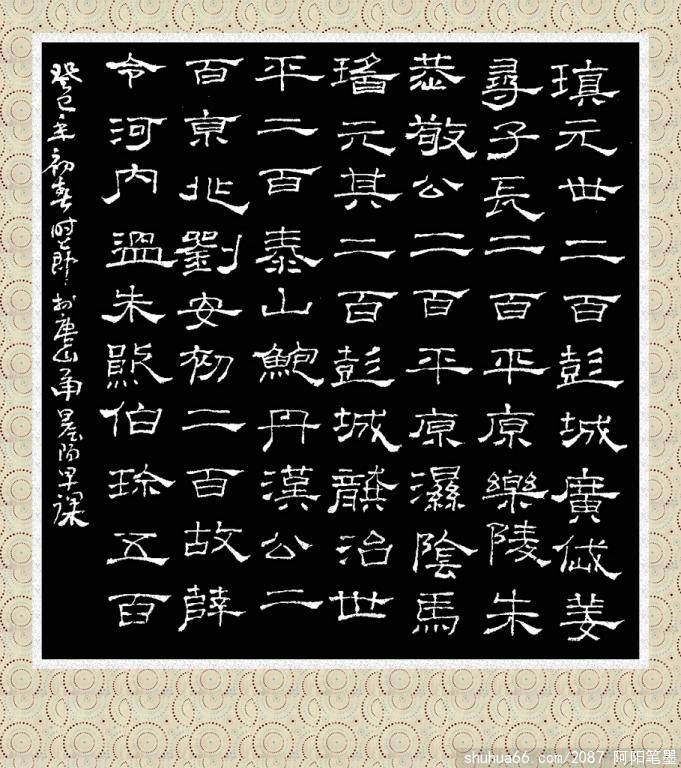 瑱元世二百彭城廣戚姜
尋子長二百平原樂陵朱
恭敬公二百平原濕陰馬
瑤元其二百彭城龔治世
平二百泰山鮑丹漢公二
百京兆劉安初二百故薛
令河內溫朱熊伯珍五百
癸巳年初春时节于唐山早课
shuhua66.com/2087 阿阳笔墨